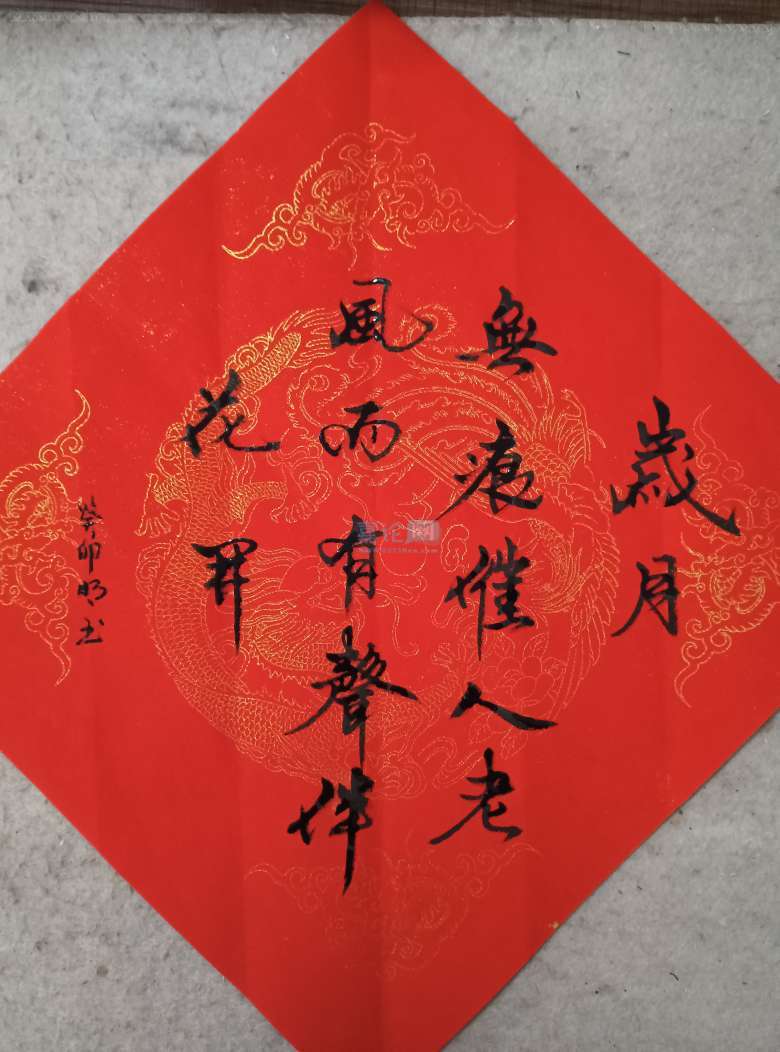 歲月
無痕催人老
風雨有聲伴
花開
癸卯明书